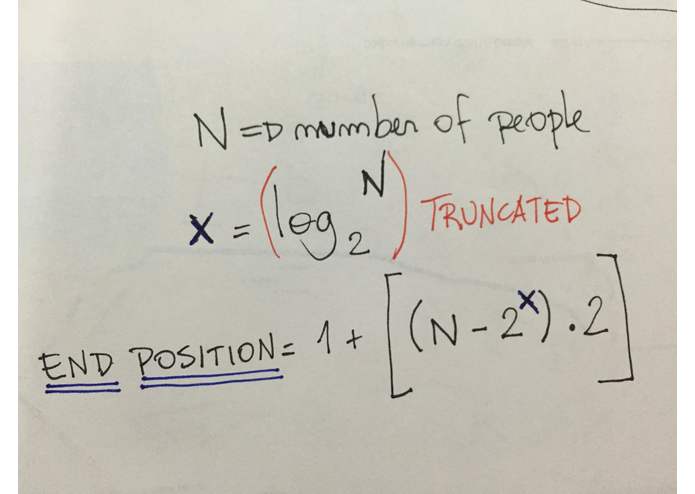 N => number of people
x = (log₂ N) TRUNCATED
END POSITION = 1 + [(N - 2ˣ) . 2]